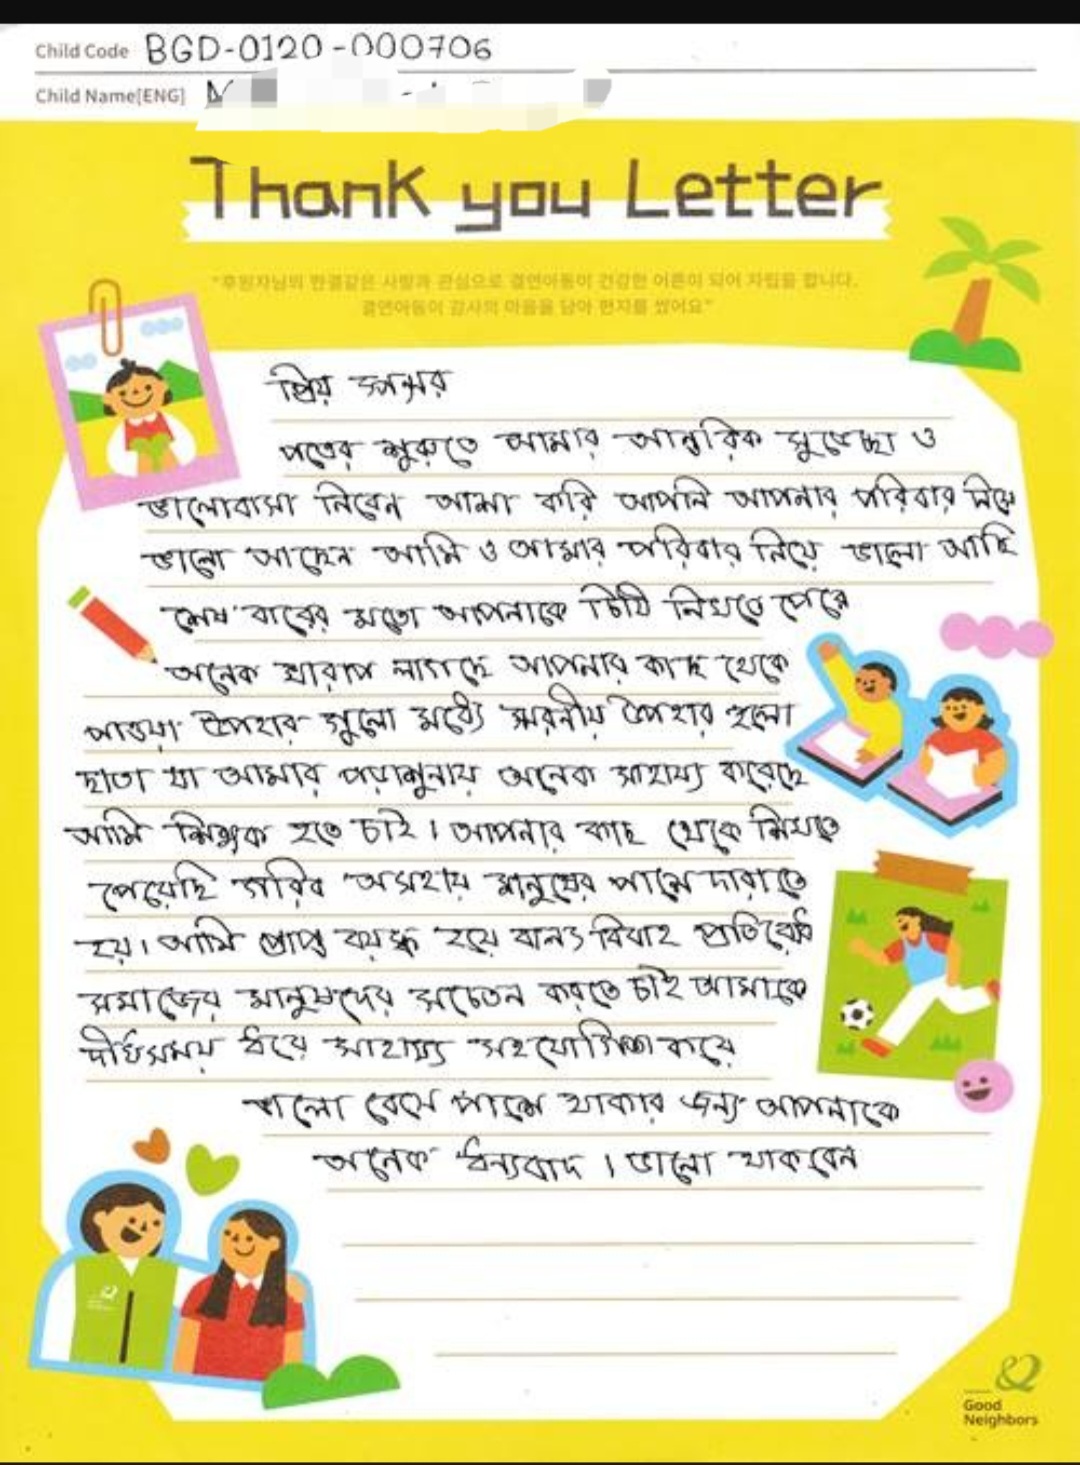 Child Code BGD-0120-000706
Child Name[ENG]
Thank you Letter
"후원자님의 한결같은 사랑과 관심으로 결연아동이 건강한 어른이 되어 자립을 합니다.
결연아동이 감사의 마음을 담아 편지를 썼어요"
প্রিয় স্পন্সর
পত্রের শুরুতে আমার আন্তরিক সুভেচ্ছা ও
ভালোবাসা নিবেন আশা করি আপনি আপনার পরিবার নিয়ে
ভালো আছেন আমি ও আমার পরিবার নিয়ে ভালো আছি
শেষ বারের মতো আপনাকে চিঠি লিখতে পেরে
অনেক খারাপ লাগছে আপনার কাছ থেকে
পাওয়া উপহার গুলো মধ্যে স্মরনীয় উপহার হলো
ছাতা যা আমার পড়াশুনায় অনেক সাহায্য করেছে
আমি শিক্ষক হতে চাই। আপনার কাছ থেকে শিখতে
পেয়েছি গরিব অসহায় মানুষের পাশে দারাতে
হয়। আমি প্রাপ্ত বয়স্ক হয়ে বাল্য বিবাহ প্রতিরোধ
সমাজের মানুষদের সচেতন করতে চাই আমাকে
দীর্ঘসময় ধরে সাহায্য সহযোগিতা করে
ভালো বেসে পাশে থাকার জন্য আপনাকে
অনেক ধন্যবাদ। ভালো থাকবেন
Good
Neighbors